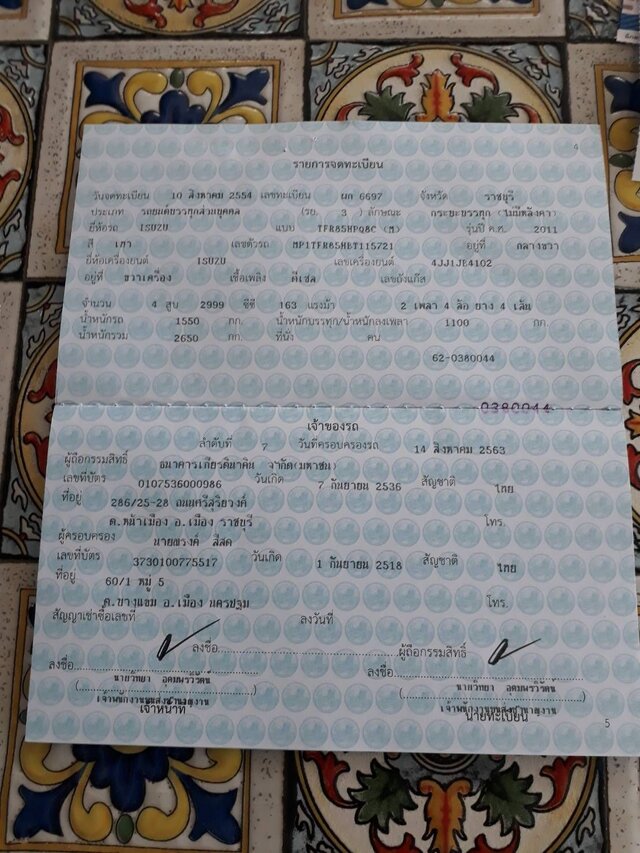 4
รายการจดทะเบียน
วันจดทะเบียน 10 สิงหาคม 2554 เลขทะเบียน ผก 6697 จังหวัด ราชบุรี
ประเภท รถยนต์บรรทุกส่วนบุคคล (รย. 3 ) ลักษณะ กระบะบรรทุก (ไม่มีหลังคา)
ยี่ห้อรถ ISUZU แบบ TFR85HPQ8C (M) รุ่นปี ค.ศ. 2011
สี เทา เลขตัวรถ MP1TFR85HBT115721 อยู่ที่ กลางขวา
ยี่ห้อเครื่องยนต์ ISUZU เลขเครื่องยนต์ 4JJ1JE4102
อยู่ที่ ขวาเครื่อง เชื้อเพลิง ดีเซล เลขถังแก๊ส
จำนวน 4 สูบ 2999 ซีซี 163 แรงม้า 2 เพลา 4 ล้อ ยาง 4 เส้น
น้ำหนักรถ 1550 กก. น้ำหนักบรรทุก/น้ำหนักลงเพลา 1100 กก.
น้ำหนักรวม 2650 กก. ที่นั่ง คน
62-0380044
0380044
เจ้าของรถ
ลำดับที่ 7 วันที่ครอบครองรถ 14 สิงหาคม 2563
ผู้ถือกรรมสิทธิ์ ธนาคารเกียรตินาคิน จำกัด(มหาชน)
เลขที่บัตร 0107536000986 วันเกิด 7 กันยายน 2536 สัญชาติ ไทย
ที่อยู่ 286/25-28 ถนนศรีสุริยวงค์
ต.หน้าเมือง อ.เมือง ราชบุรี โทร.
ผู้ครอบครอง นายณรงค์ สีสด
เลขที่บัตร 3730100775517 วันเกิด 1 กันยายน 2518 สัญชาติ ไทย
ที่อยู่ 60/1 หมู่ 5
ต.บางแขม อ.เมือง นครปฐม โทร.
สัญญาเช่าซื้อเลขที่ ลงวันที่
ลงชื่อ ผู้ถือกรรมสิทธิ์
ลงชื่อ ลงชื่อ
นายวิทยา อุดมพรวิรัตน์ นายวิทยา อุดมพรวิรัตน์
เจ้าพนักงานขนส่งชำนาญงาน เจ้าพนักงานขนส่งชำนาญงาน
เจ้าหน้าที่ นายทะเบียน
5